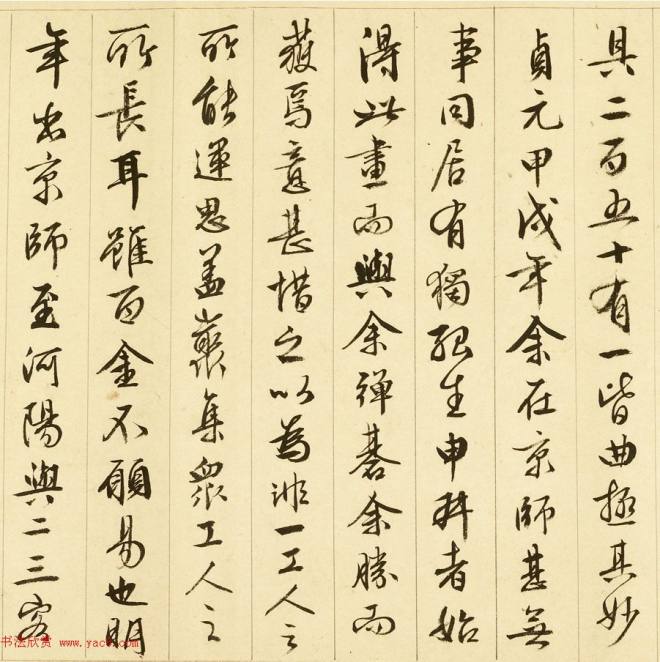 具二百五十有一皆曲極其妙
貞元甲戌年余在京師甚無
事同居有獨孤生申叔者始
得此畫而與余彈碁余勝而
獲焉意甚惜之以為非一工人之
所能運思蓋裒集眾工人之
所長耳雖百金不願易也明
年出京師至河陽與二三客
书法欣赏 www.yac8.com